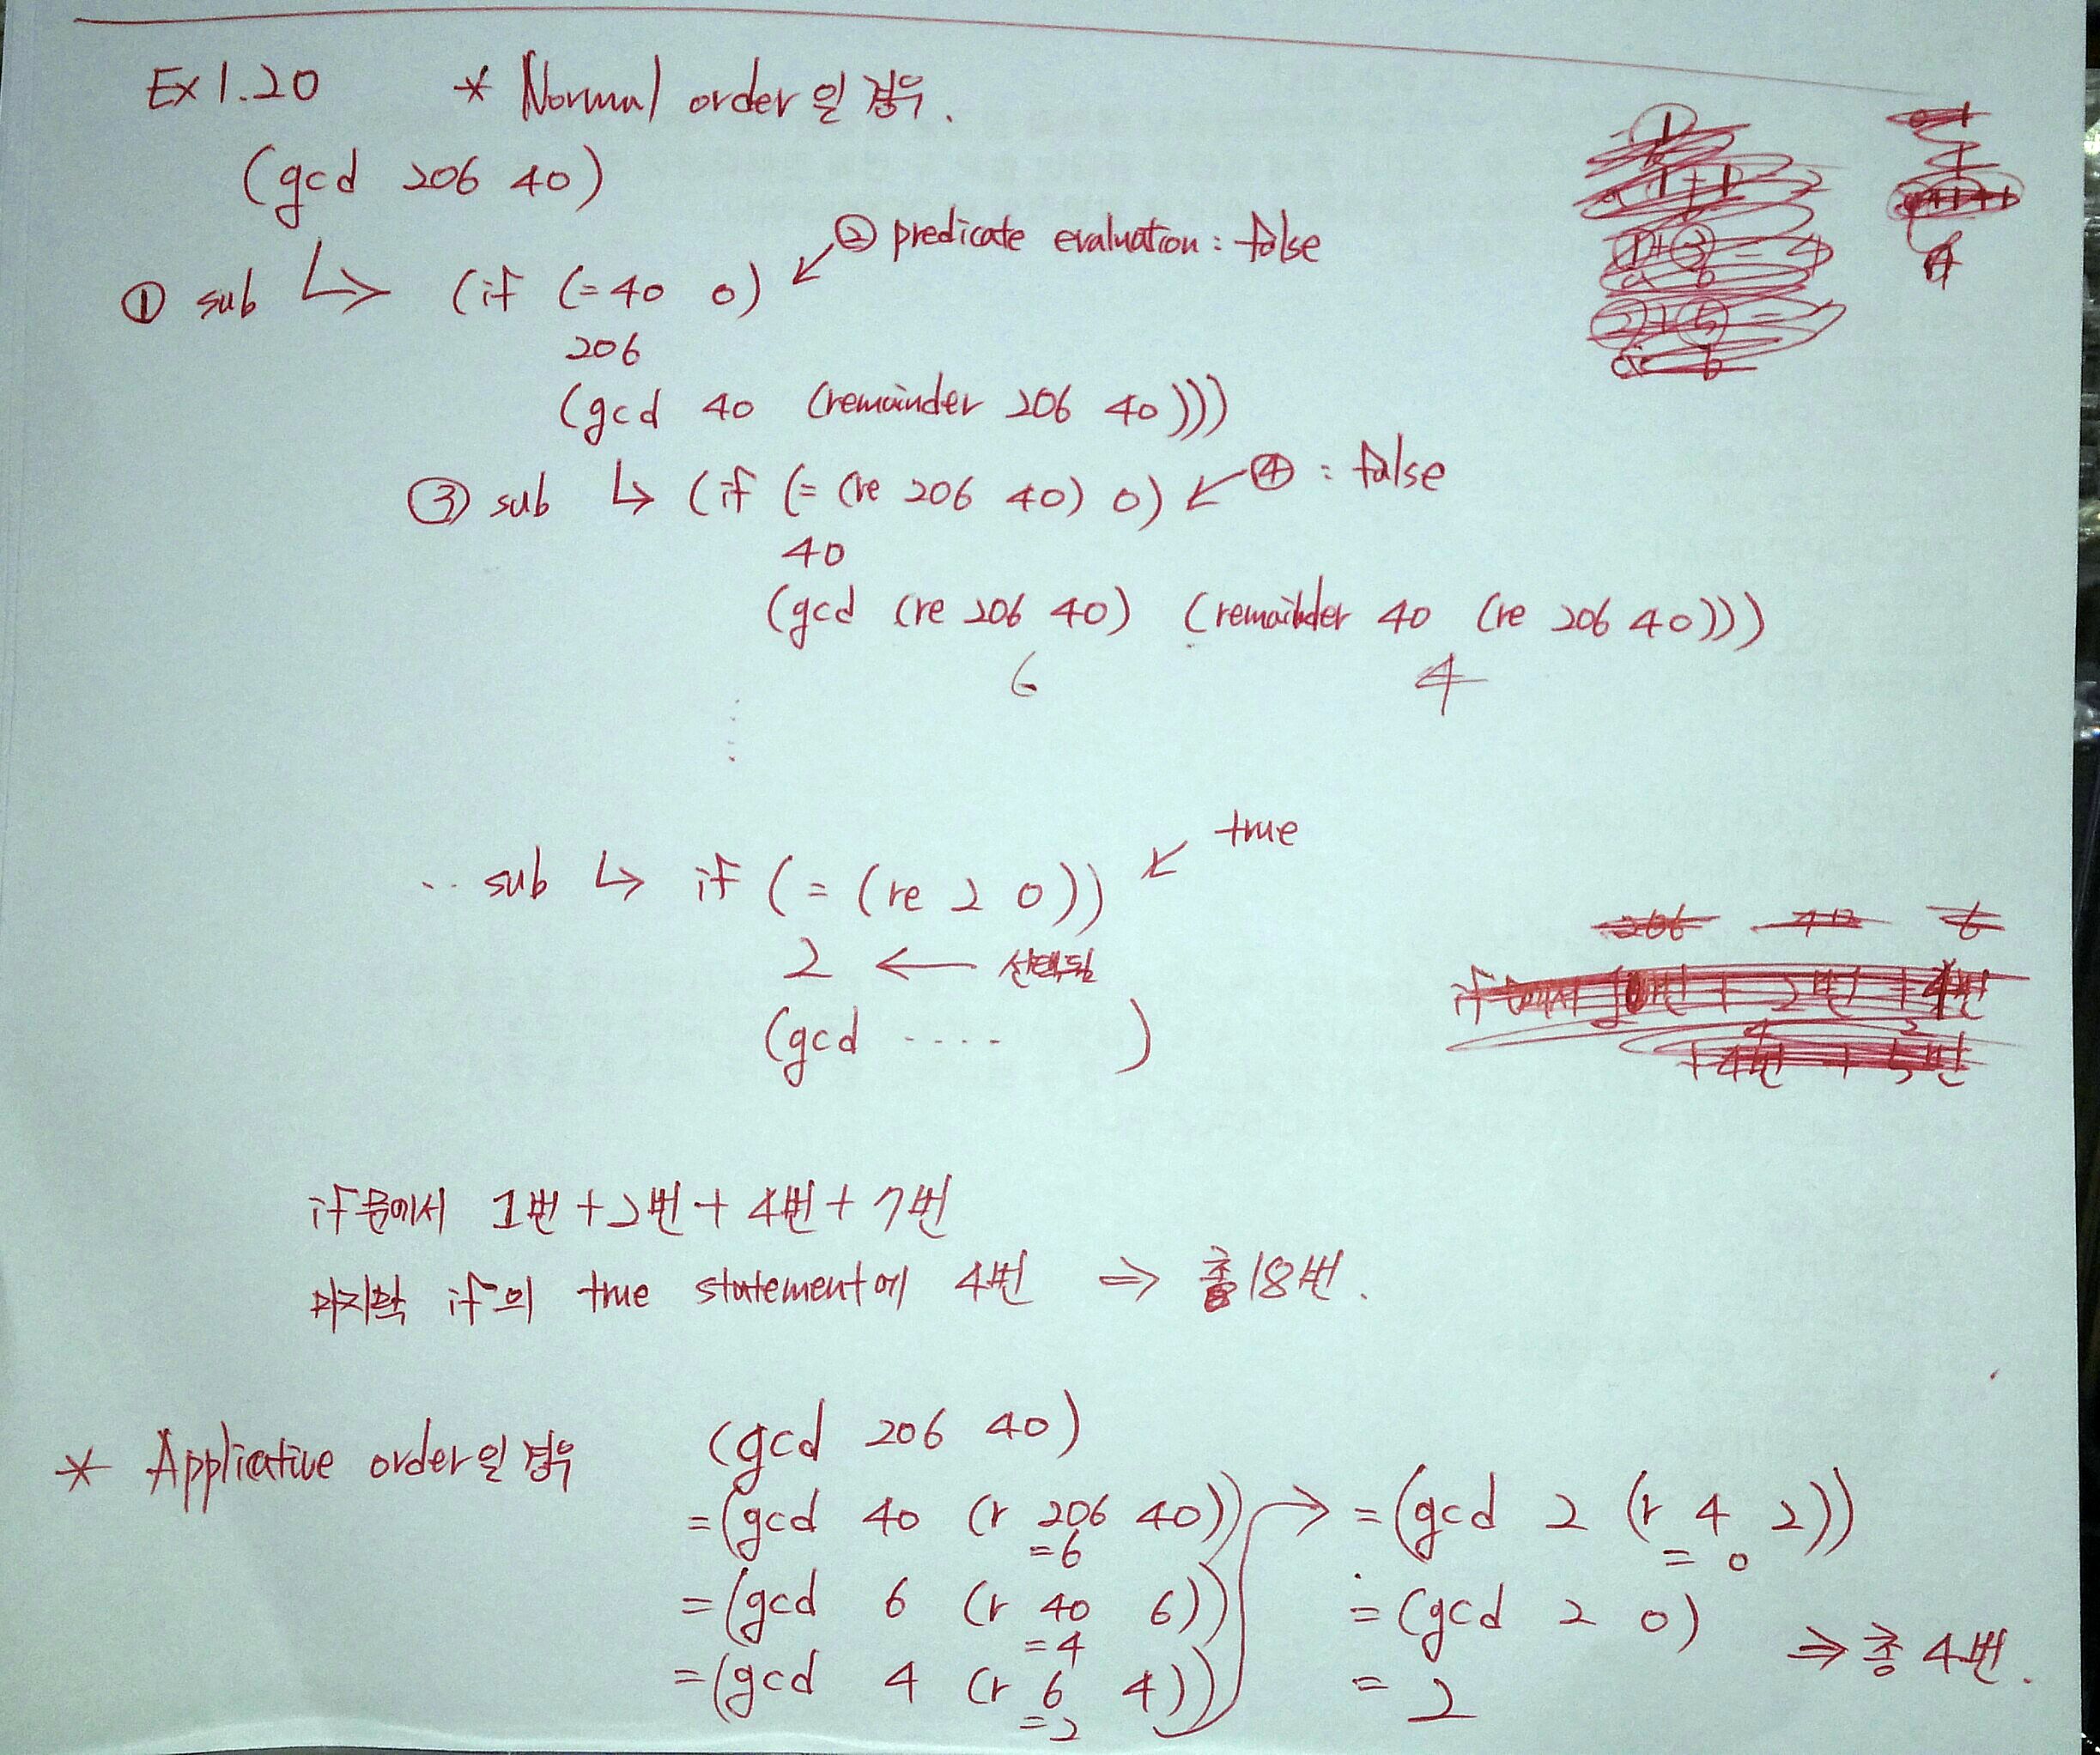 Ex 1.20 * Normal order일 경우.
(gcd 206 40)
① sub ↳ (if (= 40 0) ↙ ② predicate evaluation : false
206
(gcd 40 (remainder 206 40)))
③ sub ↳ (if (= (re 206 40) 0) ↙ ④ : false
40
(gcd (re 206 40) (remainder 40 (re 206 40)))
6 4
.. sub ↳ if (= (re 2 0)) ↙ true
2 ← 선택됨
(gcd ..... )
if문에서 1번 + 2번 + 4번 + 7번
마지막 if의 true statement에 4번 ⇒ 총 18번.
* Applicative order일 경우 (gcd 206 40)
= (gcd 40 (r 206 40))
= 6
= (gcd 6 (r 40 6))
= 4
= (gcd 4 (r 6 4))
= 2
→ = (gcd 2 (r 4 2))
= 0
= (gcd 2 0)
= 2
⇒ 총 4번.